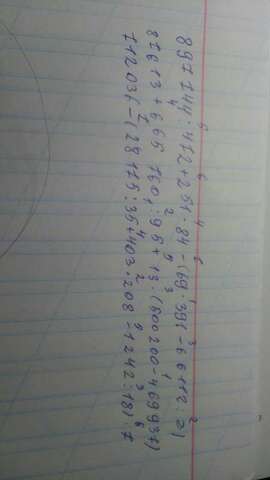 897 744 : 472 + 251 · 84 - (69 · 391 - 66112 : 2)
81613 + 665 760 : 95 + 13 · (500200 - 469937)
112036 - (28175 : 35 + 403 · 208 - 1242 : 18) : 7